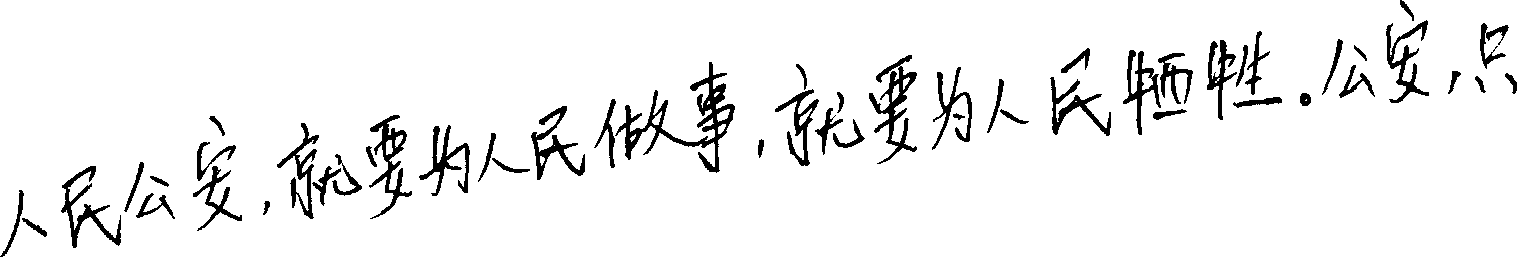 人民公安,就要为人民做事,就要为人民牺牲。公安,只